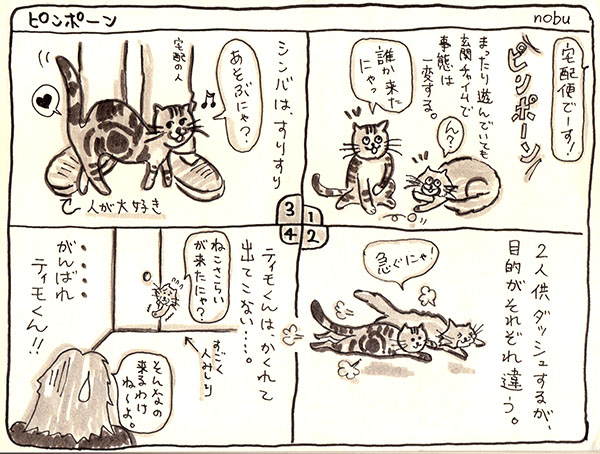 ピンポーン
nobu
宅配便でーす!
ピンポーン
まったり遊んでいても
玄関チャイムで
事態は
一変する。
誰か来た
にゃっ
ん?
2人供ダッシュするが、
目的がそれぞれ違う。
急ぐにゃ!
シンバは、すりすり
あそぶにゃ?
宅配の人
人が大好き
ティモくんは、かくれて
出てこない…。
ねこさらい
が来たにゃ?
すごく
人みしり
そんなの
来るわけ
ね〜よ。
・・・・・
がんばれ
ティモくん!!
3
1
4
2